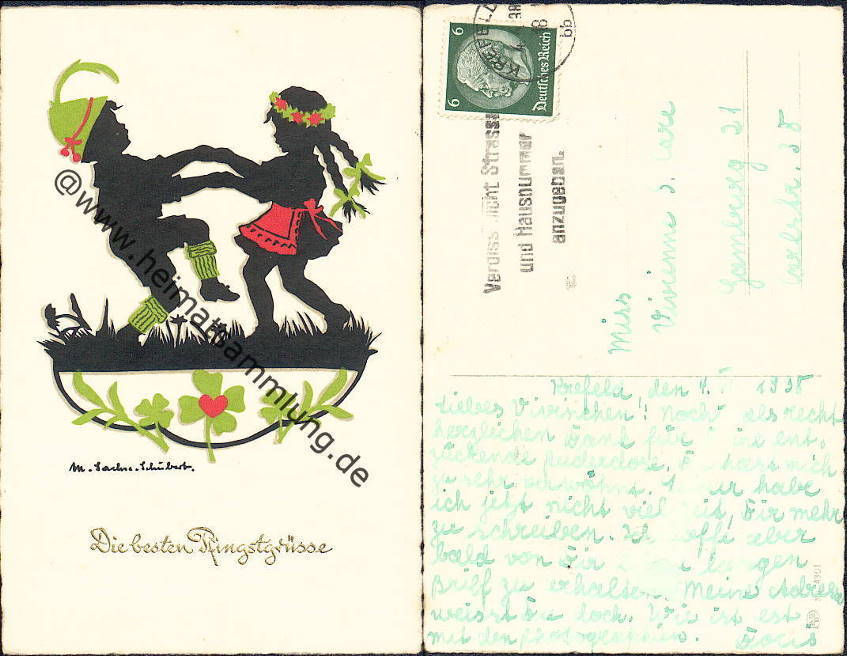 @www.heimatsammlung.de
M. Sachse-Schubert.
Die besten Pfingstgrüsse
6 6
Deutsches Reich
KREFELD
38
bb
Vergiss nicht Strasse
und Hausnummer
anzugeben.
Miss
Vivienne
21
38
Krefeld, den 4. 1938
Liebes Vivinchen! Noch als recht
herzlichen Dank für ent-
zückende Puderdose. hast mich
zu sehr verwöhnt. habe
ich jetzt nicht viel Zeit, Dir mehr
zu schreiben. Ich hoffe aber
bald von Dir langen
Brief zu erhalten. Meine Adresse
weisst Du doch. Wie ist est
mit den Doris